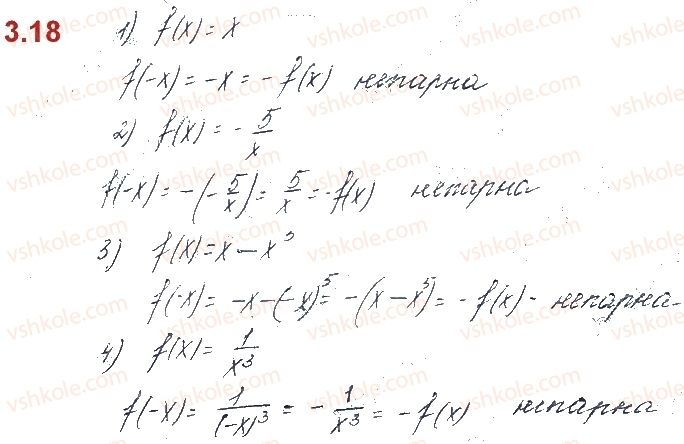 3.18
1) f(x) = x
f(-x) = -x = -f(x) непарна
2) f(x) = -5/x
f(-x) = -(-5/x) = 5/x = -f(x) непарна
3) f(x) = x - x⁵
f(-x) = -x - (-x)⁵ = -(x - x⁵) = -f(x) - непарна.
4) f(x) = 1/x³
f(-x) = 1/(-x)³ = -1/x³ = -f(x) непарна
vshkole.com